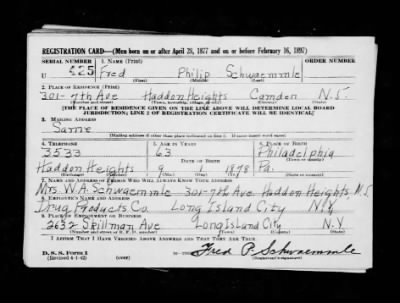 REGISTRATION CARD—(Men born on or after April 28, 1877 and on or before February 16, 1897)
SERIAL NUMBER 1. NAME (Print) ORDER NUMBER
U 525 Fred Philip Schwaemmle
(First) (Middle) (Last)
2. PLACE OF RESIDENCE (Print)
301-7th Ave Haddon Heights Camden N.J.
(Number and street) (Town, township, village, or city) (County) (State)
[THE PLACE OF RESIDENCE GIVEN ON THE LINE ABOVE WILL DETERMINE LOCAL BOARD
JURISDICTION; LINE 2 OF REGISTRATION CERTIFICATE WILL BE IDENTICAL]
3. MAILING ADDRESS
Same
[Mailing address if other than place indicated on line 2. If same insert word same]
4. TELEPHONE 5. AGE IN YEARS 6. PLACE OF BIRTH
3533 63 Philadelphia
DATE OF BIRTH
Haddon Heights 9 1 1878 Pa.
7. NAME AND ADDRESS OF PERSON WHO WILL ALWAYS KNOW YOUR ADDRESS
Mrs. W.A. Schwaemmle 301-7th Ave Haddon Heights, N.J.
8. EMPLOYER'S NAME AND ADDRESS
Drug Products Co. Long Island City N.Y.
9. PLACE OF EMPLOYMENT OR BUSINESS
2632 Skillman Ave Long Island City N.Y.
(Number and street or R. F. D. number) (Town) (County) (State)
I AFFIRM THAT I HAVE VERIFIED ABOVE ANSWERS AND THAT THEY ARE TRUE.
D. S. S. Form 1
(Revised 4-1-42)
Fred P. Schwaemmle
(Registrant's signature)